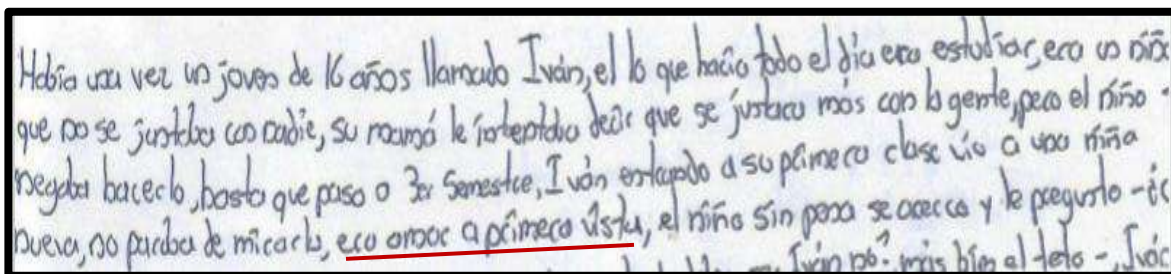 Había una vez un joven de 16 años llamado Iván, el lo que hacía todo el día era estudiar, era un niño
que no se juntaba con nadie, su mamá le intentaba decir que se juntara más con la gente, pero el niño
negaba hacerlo, hasta que paso a 3er Semestre, Iván entrando a su primera clase vio a una niña
nueva, no paraba de mirarla, era amor a primera vista, el niño sin pena se acerco y le pregunto -
Iván no? más bien el teto -, Iván